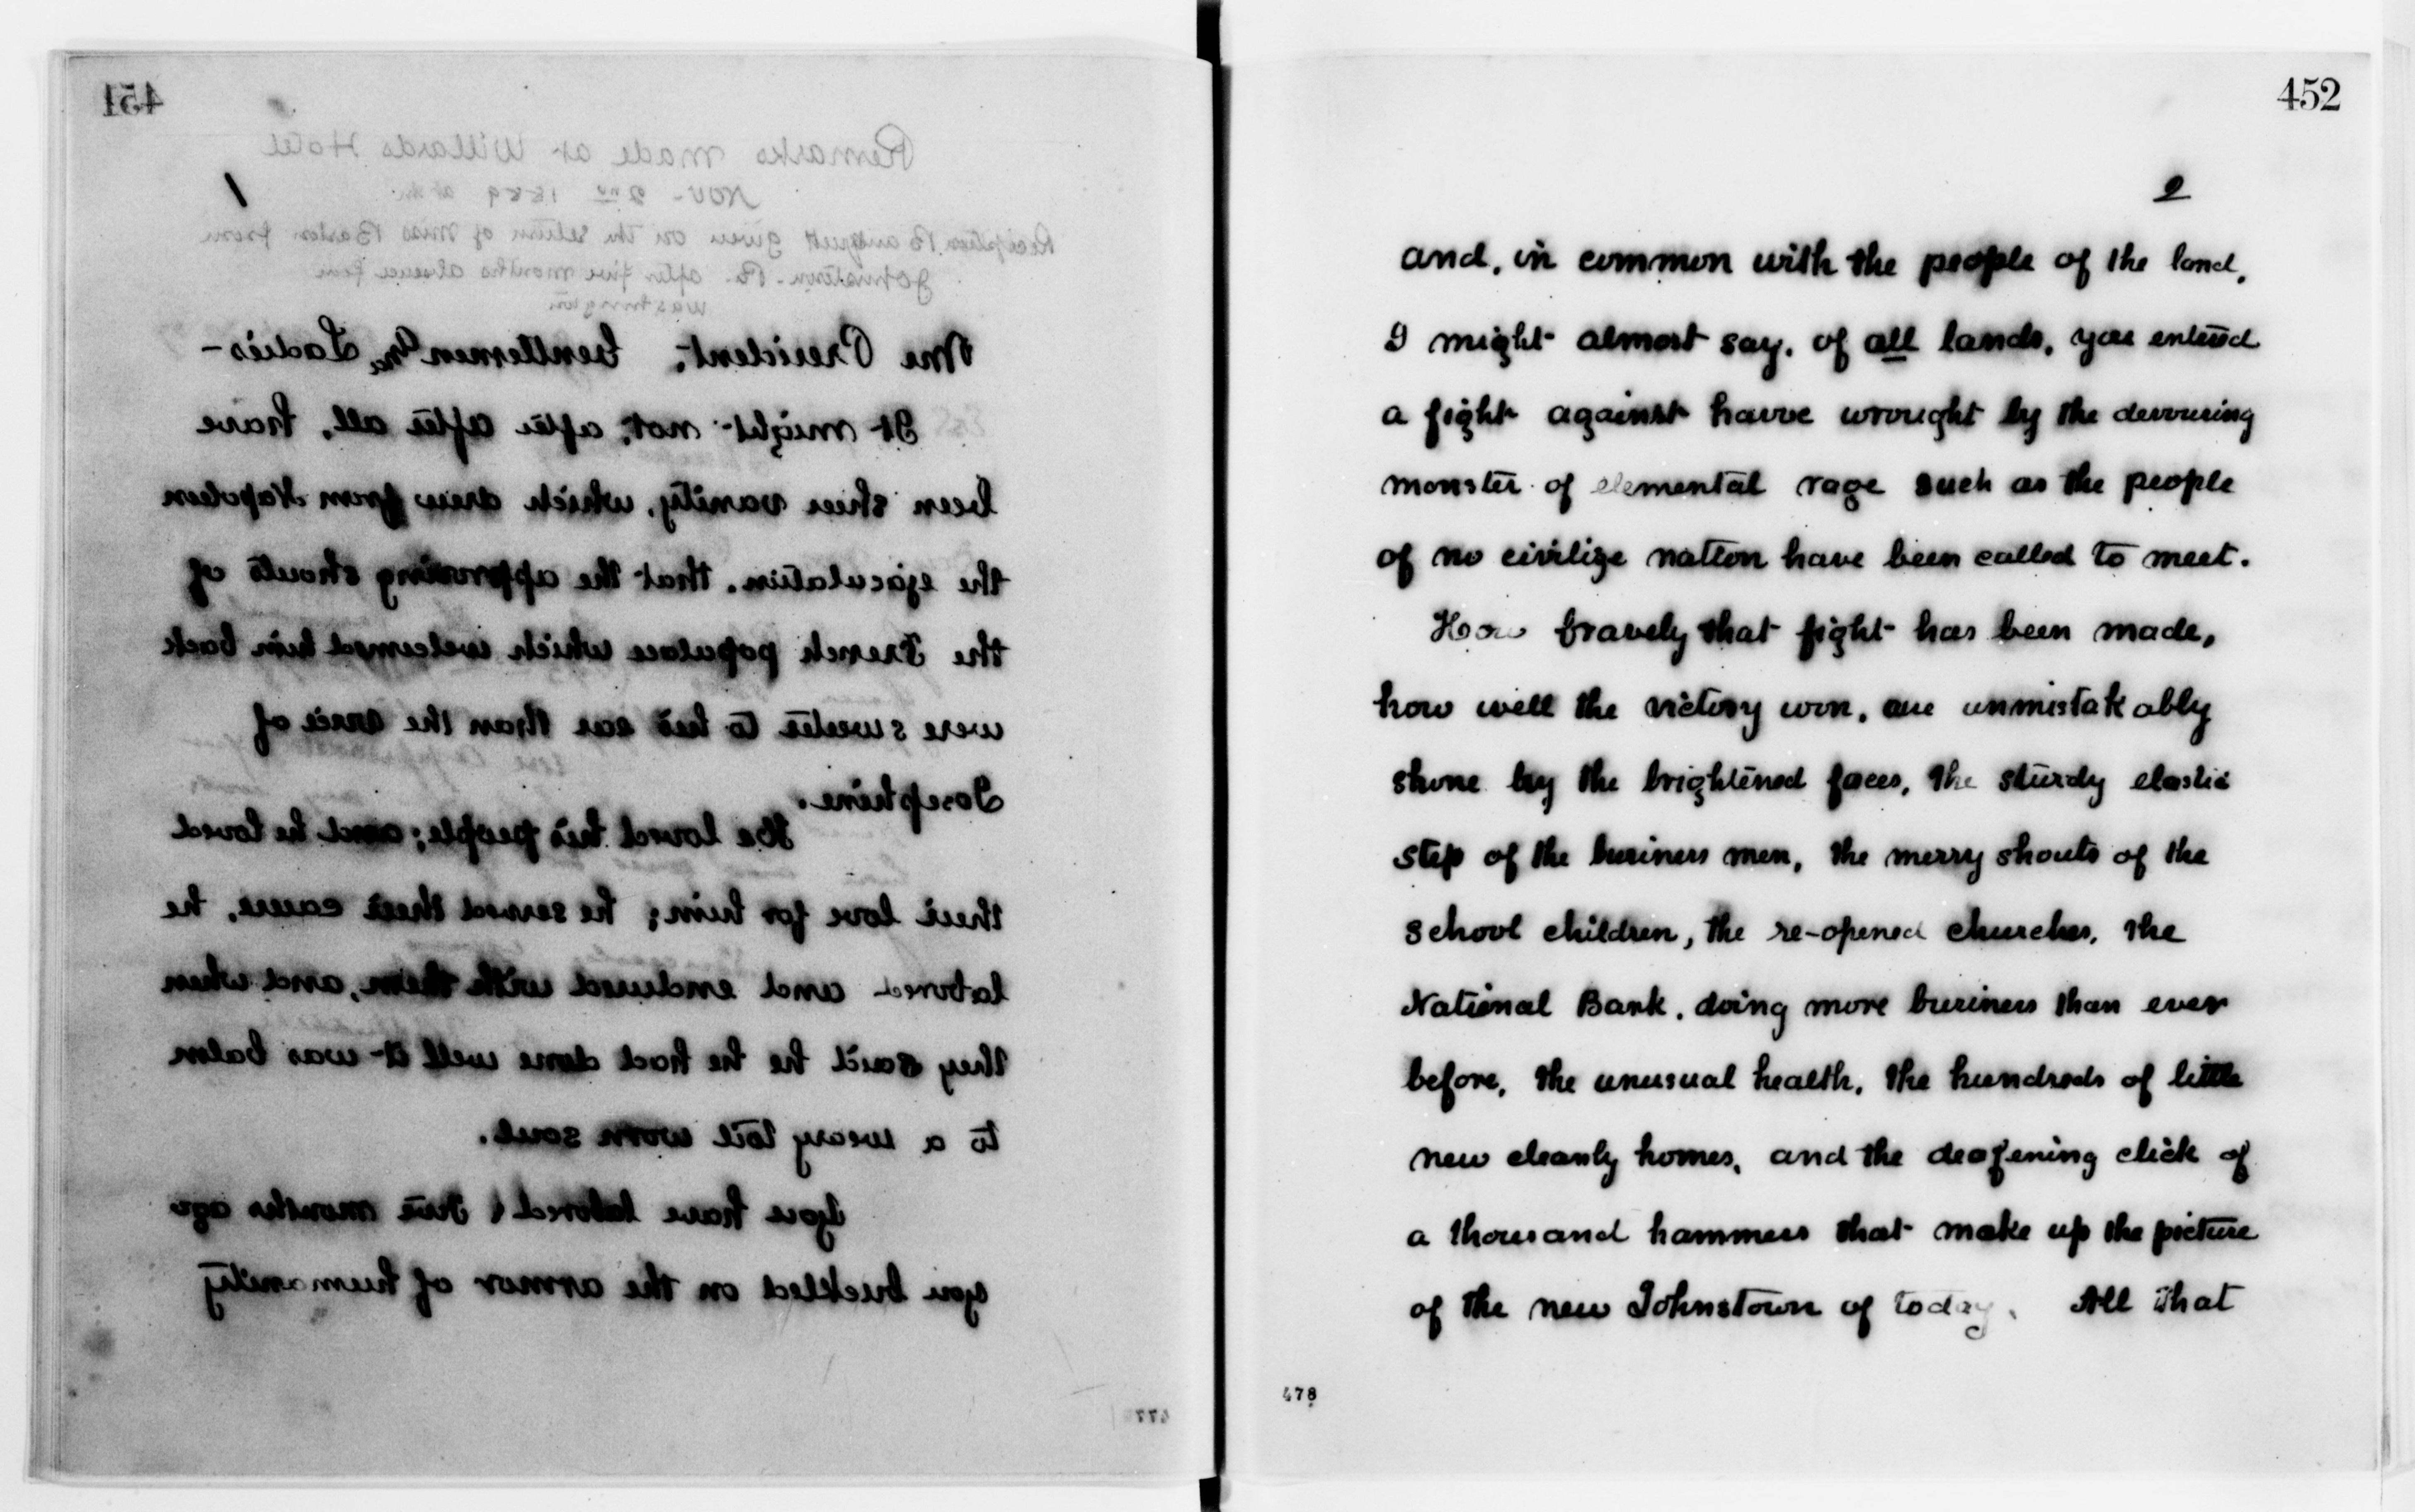 451
Remarks made at Willards Hotel
1
Nov- 2nd 1889 at the
Reception Banquet given on the return of Miss Barton from
Johnstown. Pa. after five months absence from
Washington
Mr President, Gentlemen & Ladies-
It might not, after after all, have
been sheer vanity, which drew from Napoleon
the ejaculation. that the approving shouts of
the French populace which welcomed him back
were sweeter to his ear than the voice of
Josephine.
He loved his people; and he loved
their love for him; he served their cause, he
labored and endured with them, and when
they said he he had done well it was balm
to a weary toil worn soul.
You have labored; five months ago
you buckled on the armor of humanity
477
452
2
and, in common with the people of the land,
I might almost say, of all lands, you entered
a fight against havoc wrought by the devouring
monster of elemental rage such as the people
of no civilize nation have been called to meet.
How bravely that fight has been made,
how well the victory won, are unmistakably
shone by the brightened faces, the sturdy elastic
step of the business men, the merry shouts of the
school children, the re-opened churches, the
National Bank, doing more business than ever
before, the unusual health, the hundreds of little
new cleanly homes, and the deafening click of
a thousand hammers that make up the picture
of the new Johnstown of today. All that
478